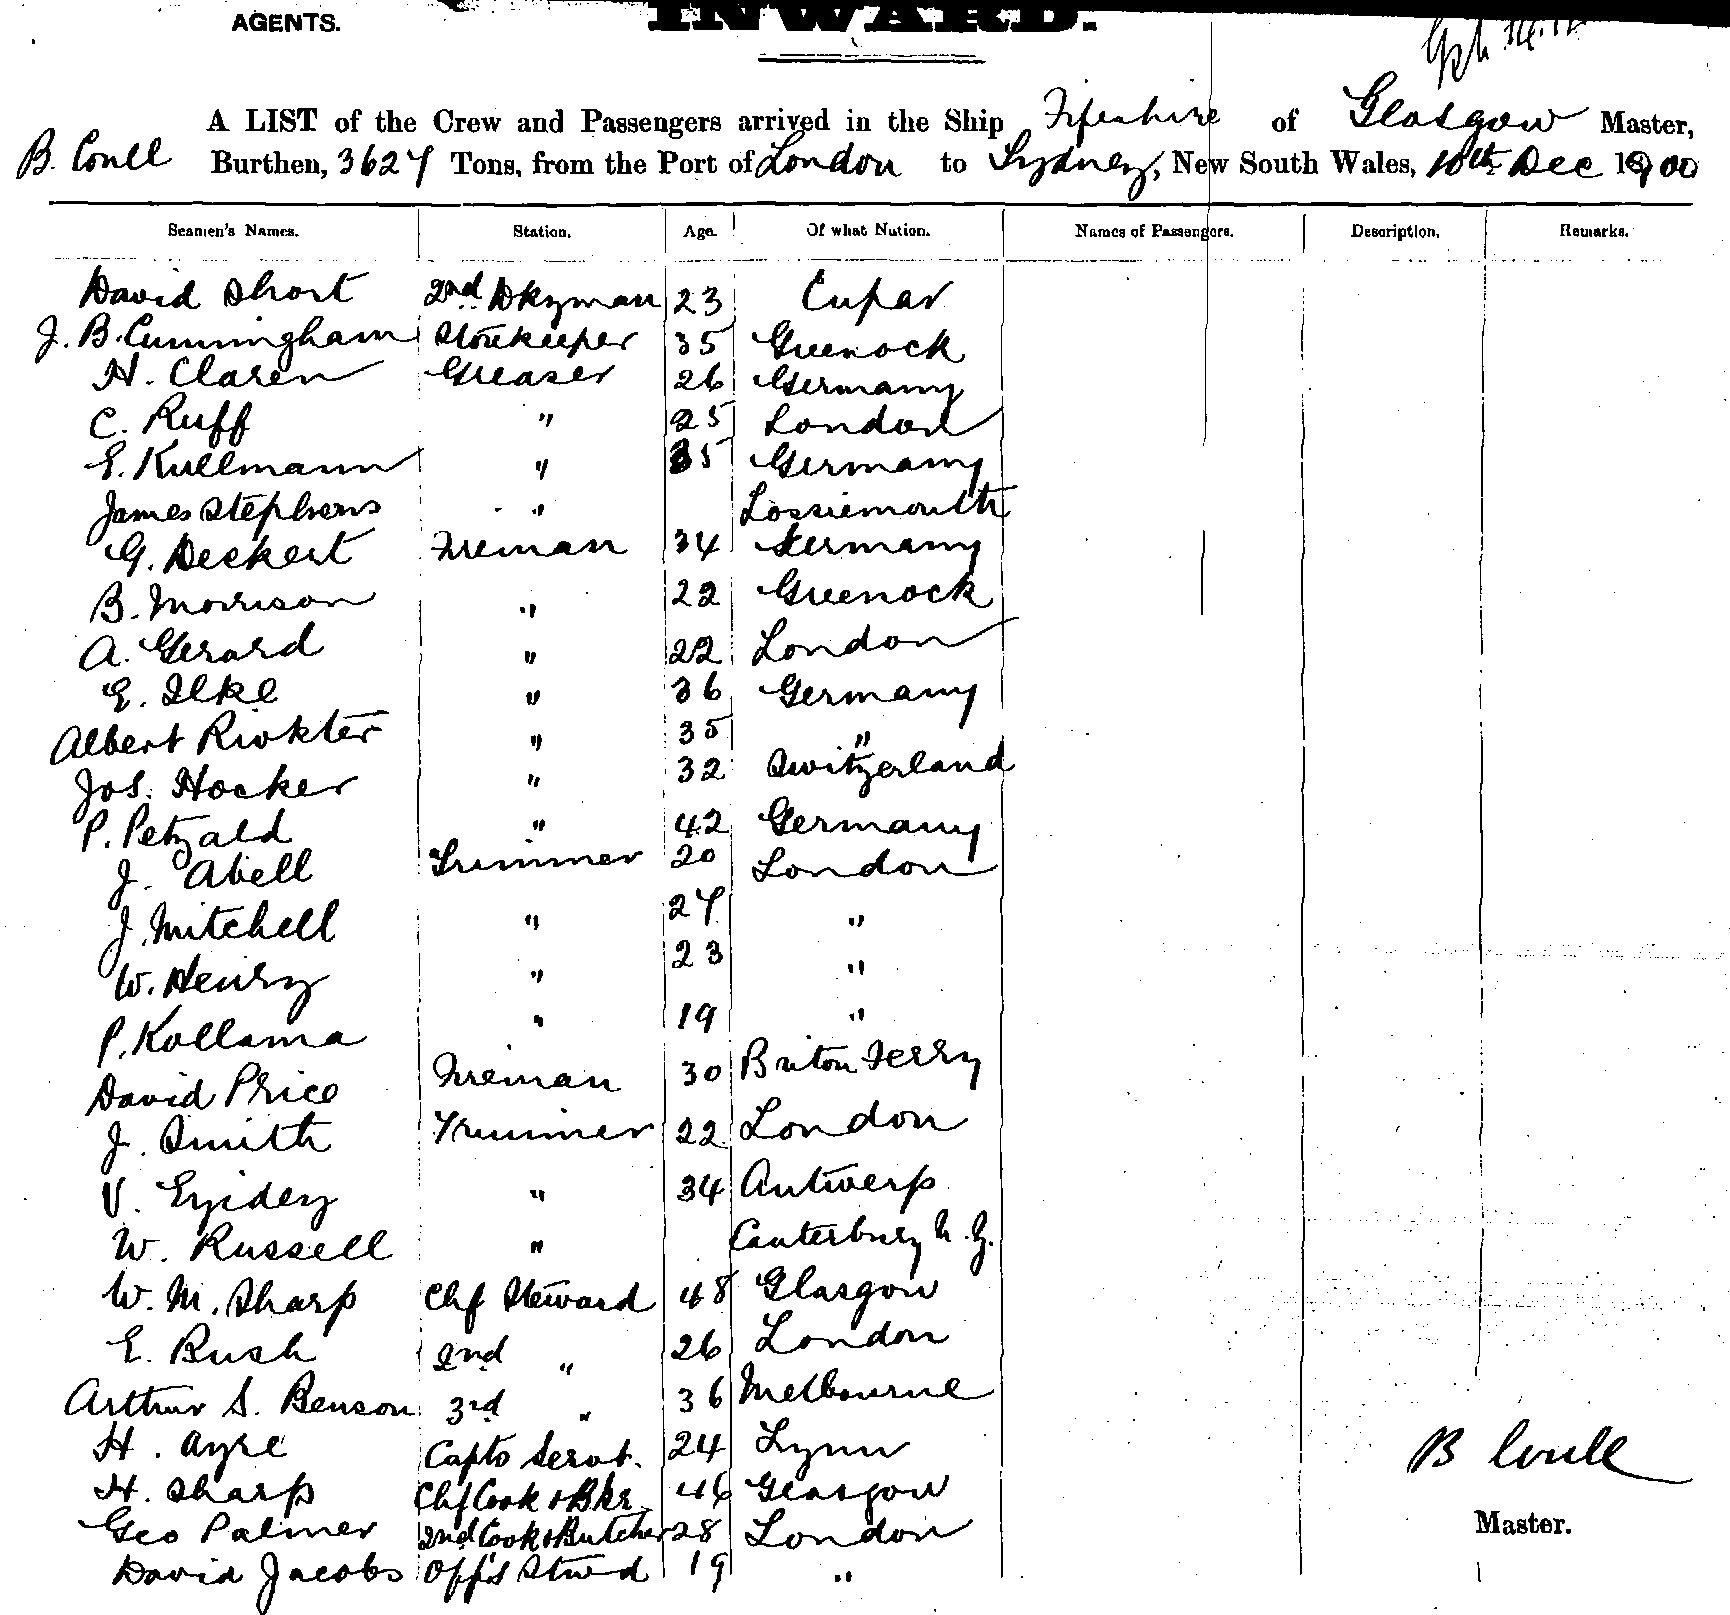 AGENTS.
INWARD.
A LIST of the Crew and Passengers arrived in the Ship Fifeshire of Glasgow Master,
B. Coull Burthen, 3627 Tons, from the Port of London to Sydney, New South Wales, 10th Dec 1900
Seamen's Names. Station. Age. Of what Nation. Names of Passengers. Description. Remarks.
David Short 2nd Dkyman 23 Cupar
J. B. Cunningham Storekeeper 35 Greenock
H. Claren Greaser 26 Germany
C. Ruff " 25 London
E. Kullmann " 35 Germany
James Stephens " Lossiemouth
G. Deckert Fireman 34 Germany
B. Morrison " 22 Greenock
A. Gerard " 22 London
E. Ilke " 36 Germany
Albert Rickter " 35 "
Jos. Hocker " 32 Switzerland
P. Petzald " 42 Germany
J. Abell Trimmer 20 London
J. Mitchell " 27 "
W. Henry " 23 "
P. Kollama " 19 "
David Price Fireman 30 Briton Ferry
J. Smith Trimmer 22 London
V. " 34 Antwerp
W. Russell " Canterbury N.Z.
W. M. Sharp Chf Steward 48 Glasgow
E. Bush 2nd " 26 London
Arthur S. Benson 3rd " 36 Melbourne
H. Ayre Capts Servt. 24 Lynn
H. Sharp Chf Cook & Bkr 46 Glasgow
Geo Palmer 2nd Cook & Butcher 28 London
David Jacobs Off's Stwd 19 "
B Coull
Master.